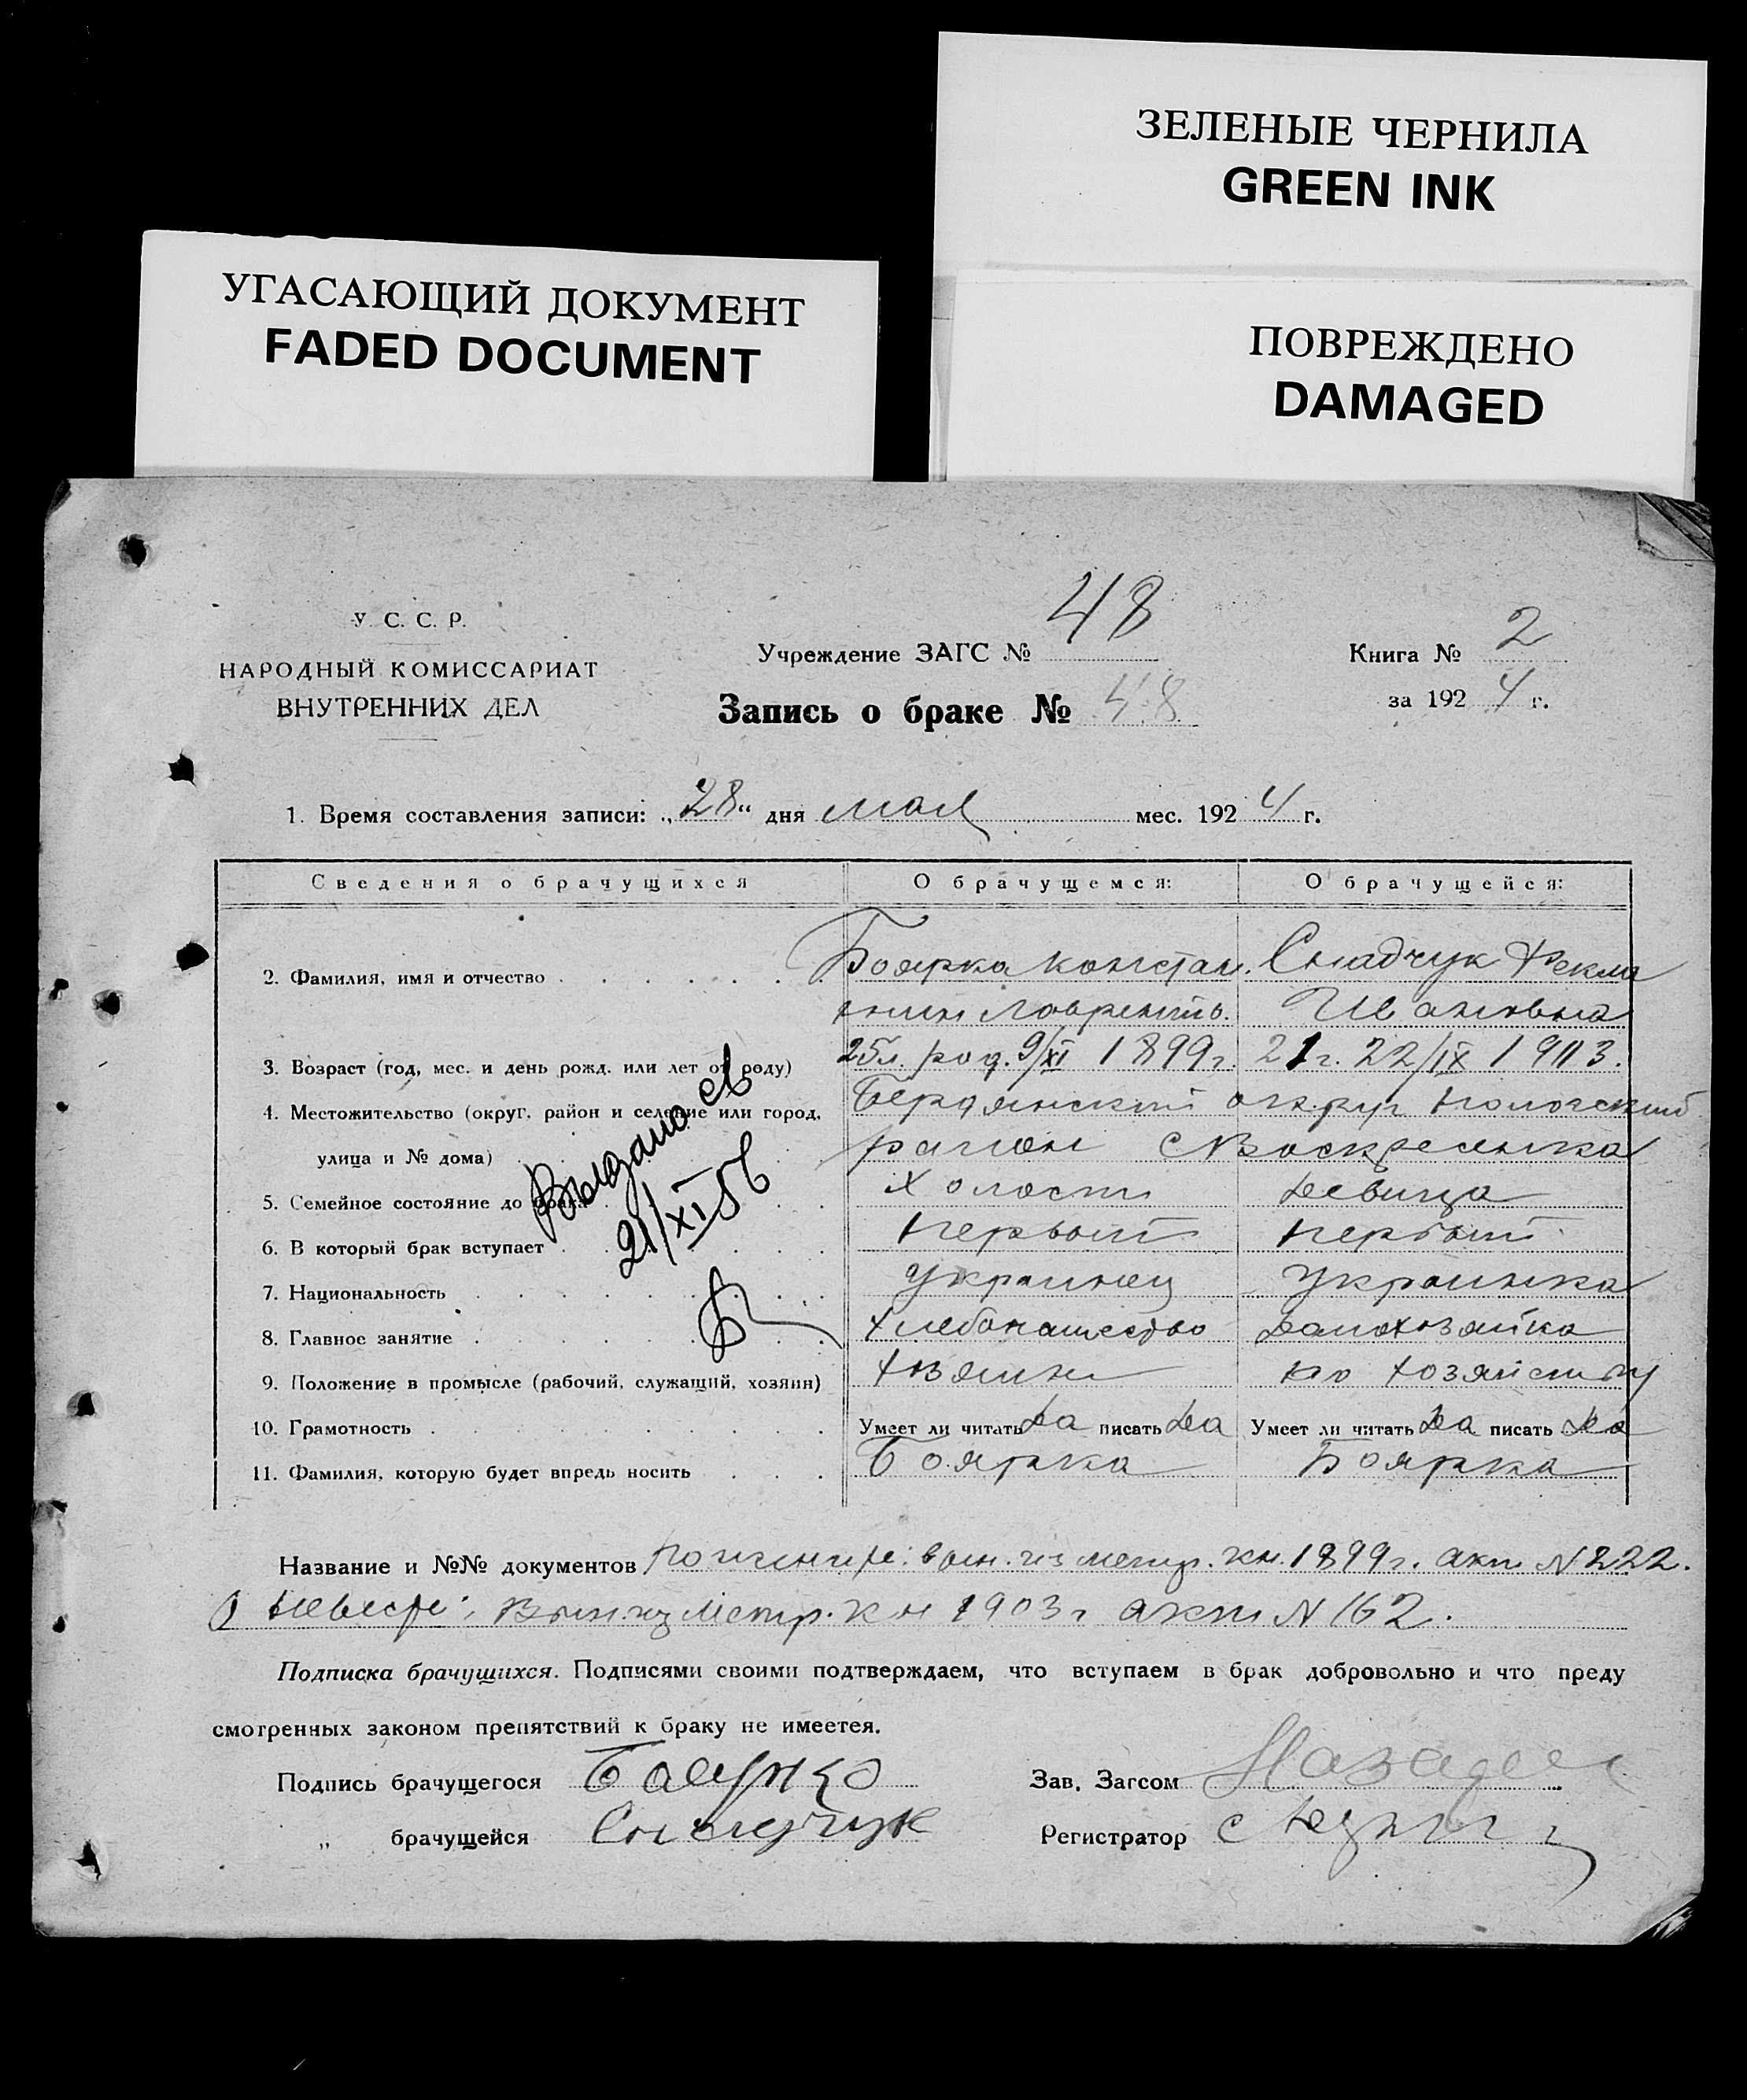 ЗЕЛЕНЫЕ ЧЕРНИЛА
GREEN INK
УГАСАЮЩИЙ ДОКУМЕНТ
FADED DOCUMENT
ПОВРЕЖДЕНО
DAMAGED
У. С. С. Р.
НАРОДНЫЙ КОМИССАРИАТ
ВНУТРЕННИХ ДЕЛ
Учреждение ЗАГС № 48
Запись о браке № 48
Книга № 2
за 1924 г.
1. Время составления записи: „28“ дня мая мес. 1924 г.
Сведения о брачущихся О брачущемся: О брачущейся:
2. Фамилия, имя и отчество Боярка Констан. Сындчук Фекла
тин Лаврентьв. Ивановна
3. Возраст (год, мес. и день рожд. или лет от роду) 25л. род. 9/XI 1899г. 21г. 22/IX 1903.
4. Местожительство (округ, район и селение или город, Бердянский округ Пологский
улица и № дома) район с Воскресенка
5. Семейное состояние до брака Холост Девица
6. В который брак вступает первый первый
7. Национальность Украинец Украинка
8. Главное занятие Хлебопашество Домохозяйка
9. Положение в промысле (рабочий, служащий, хозяин) Хозяин по хозяйству
10. Грамотность Умеет ли читать Да писать Да Умеет ли читать Да писать Да
11. Фамилия, которую будет впредь носить Боярка Боярка
Выдано св
21/XI 56
Название и №№ документов о женихе: вып. из метр. кн. 1899г. акт N 222.
О невесте: Вып. из Метр. Кн 1903г акт N 162.
Подписка брачущихся. Подписями своими подтверждаем, что вступаем в брак добровольно и что преду
смотренных законом препятствий к браку не имеетея.
Подпись брачущегося Баярко Зав. Загсом
„ брачущейся Регистратор